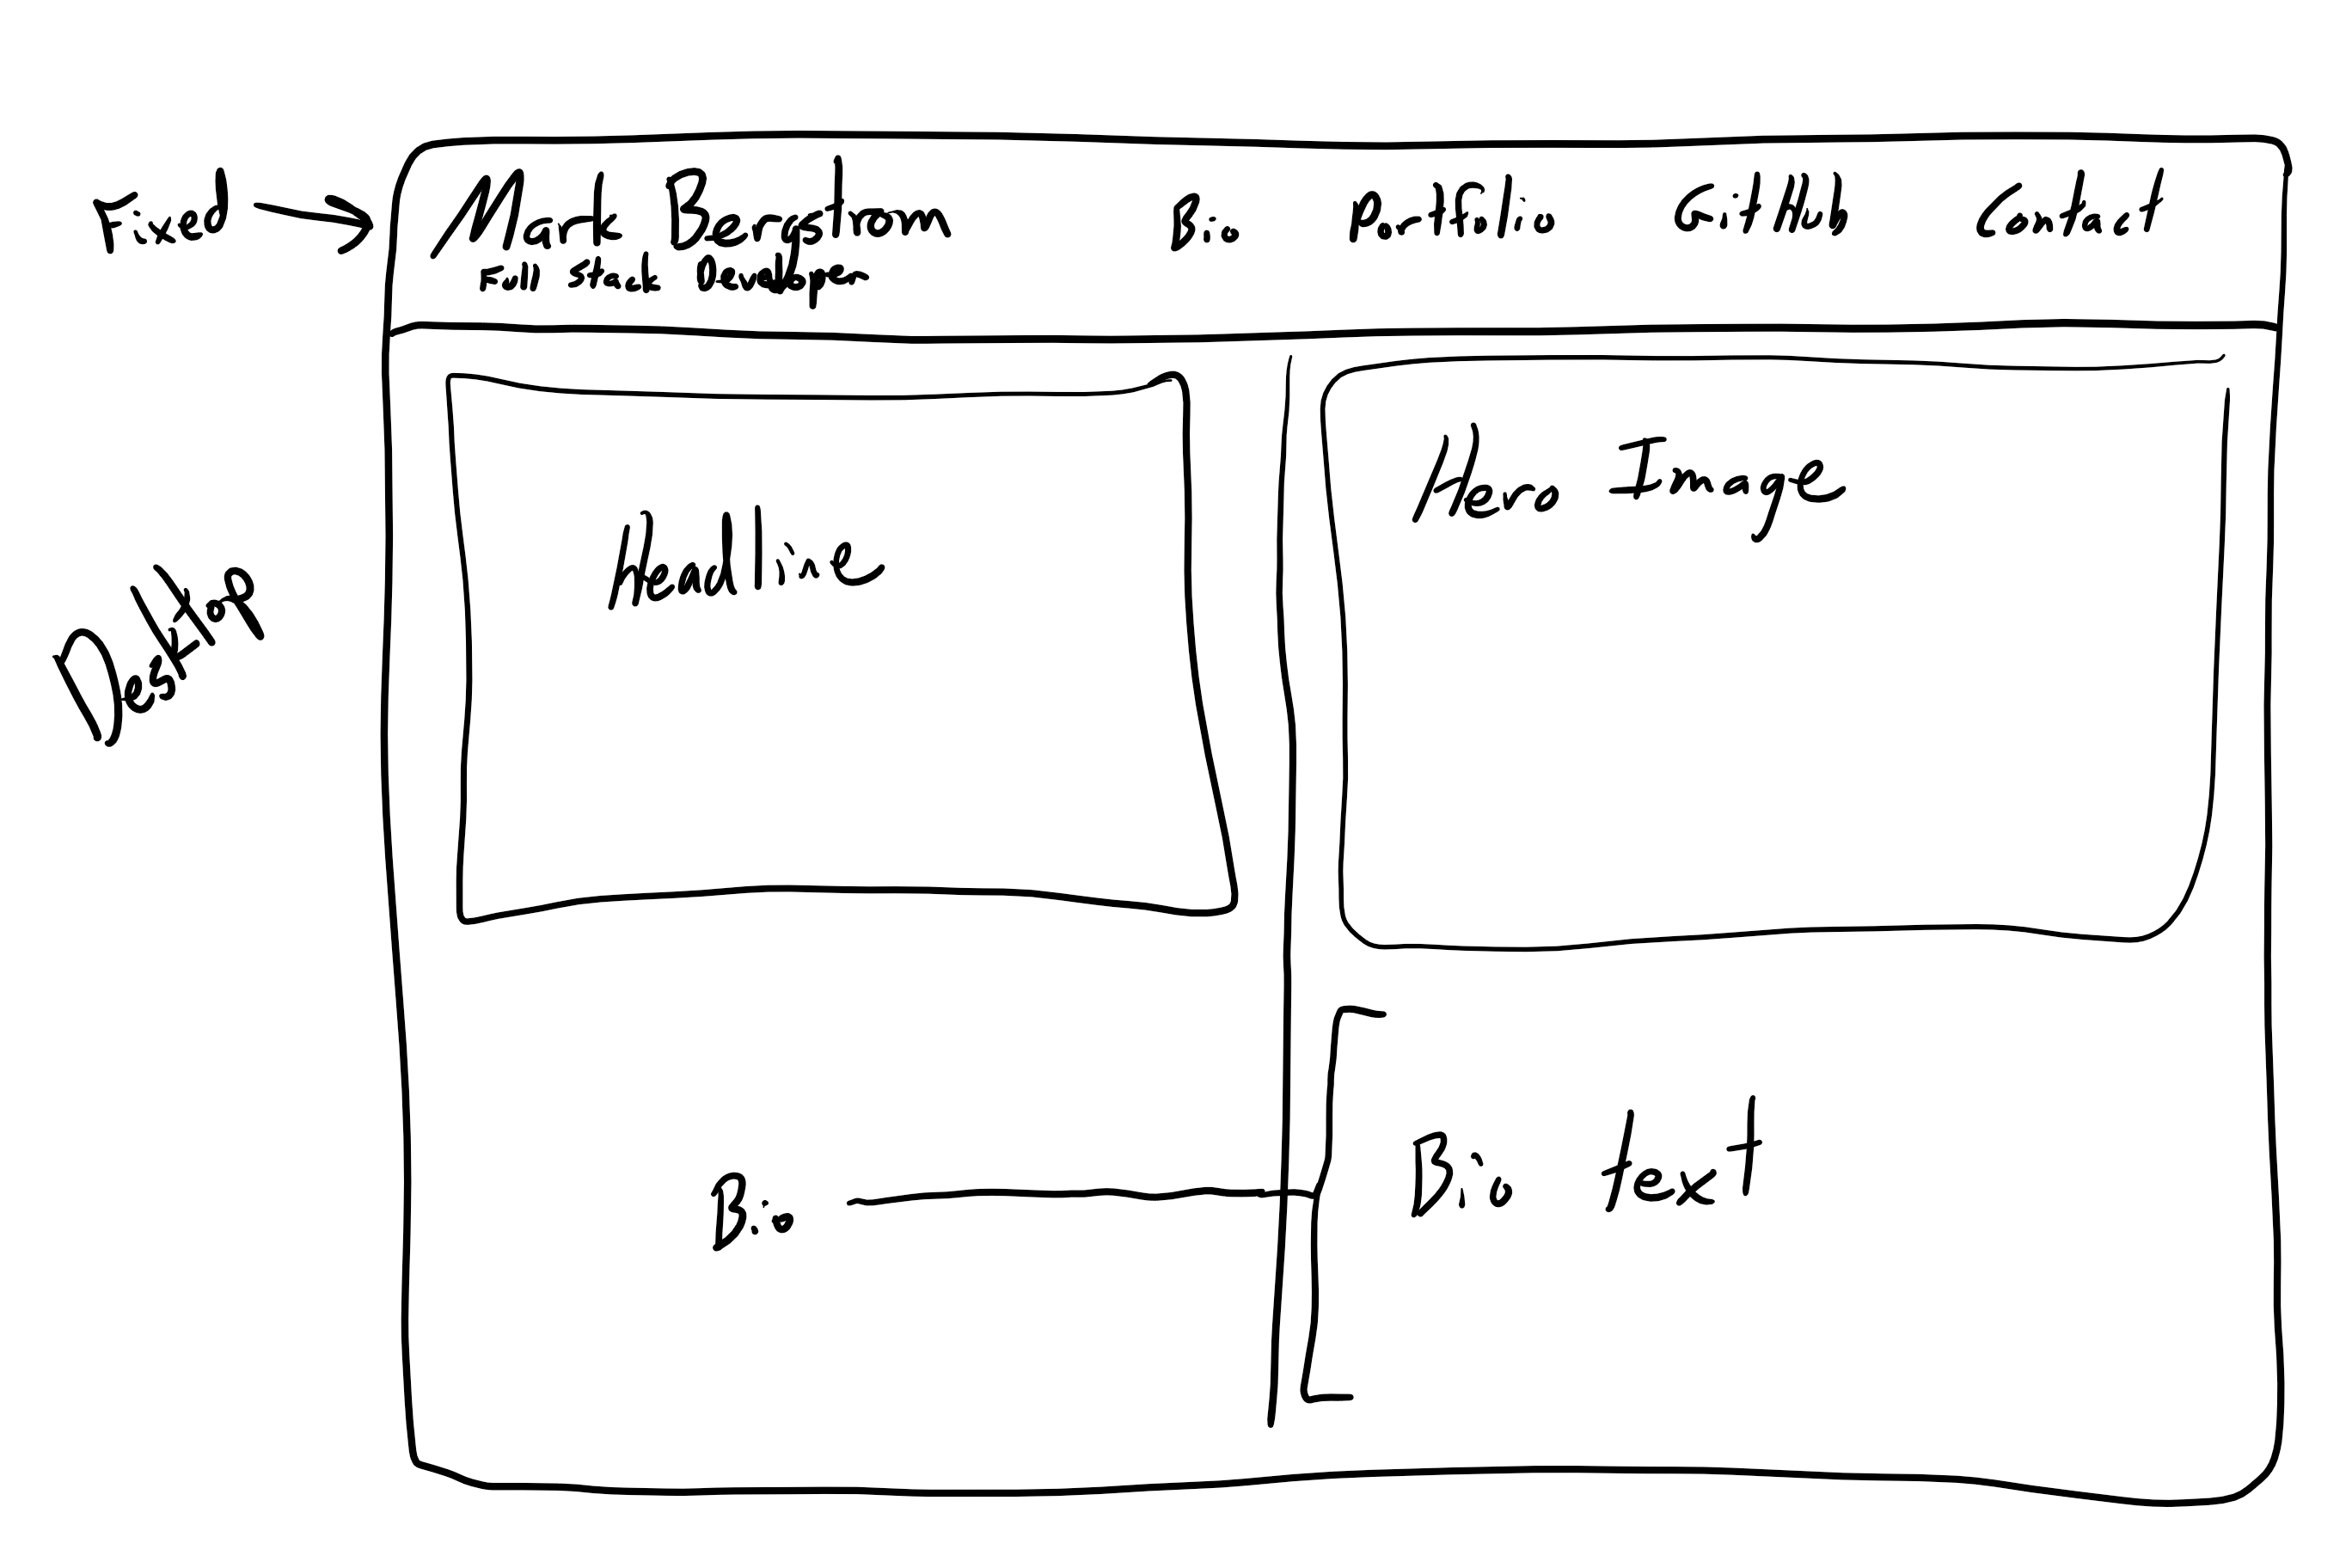 Fixed
Mark Bernstrom
Full Stack Developer
Bio
Portfolio
GitHub
Contact
Desktop
Headline
Hero Image
Bio
Bio text